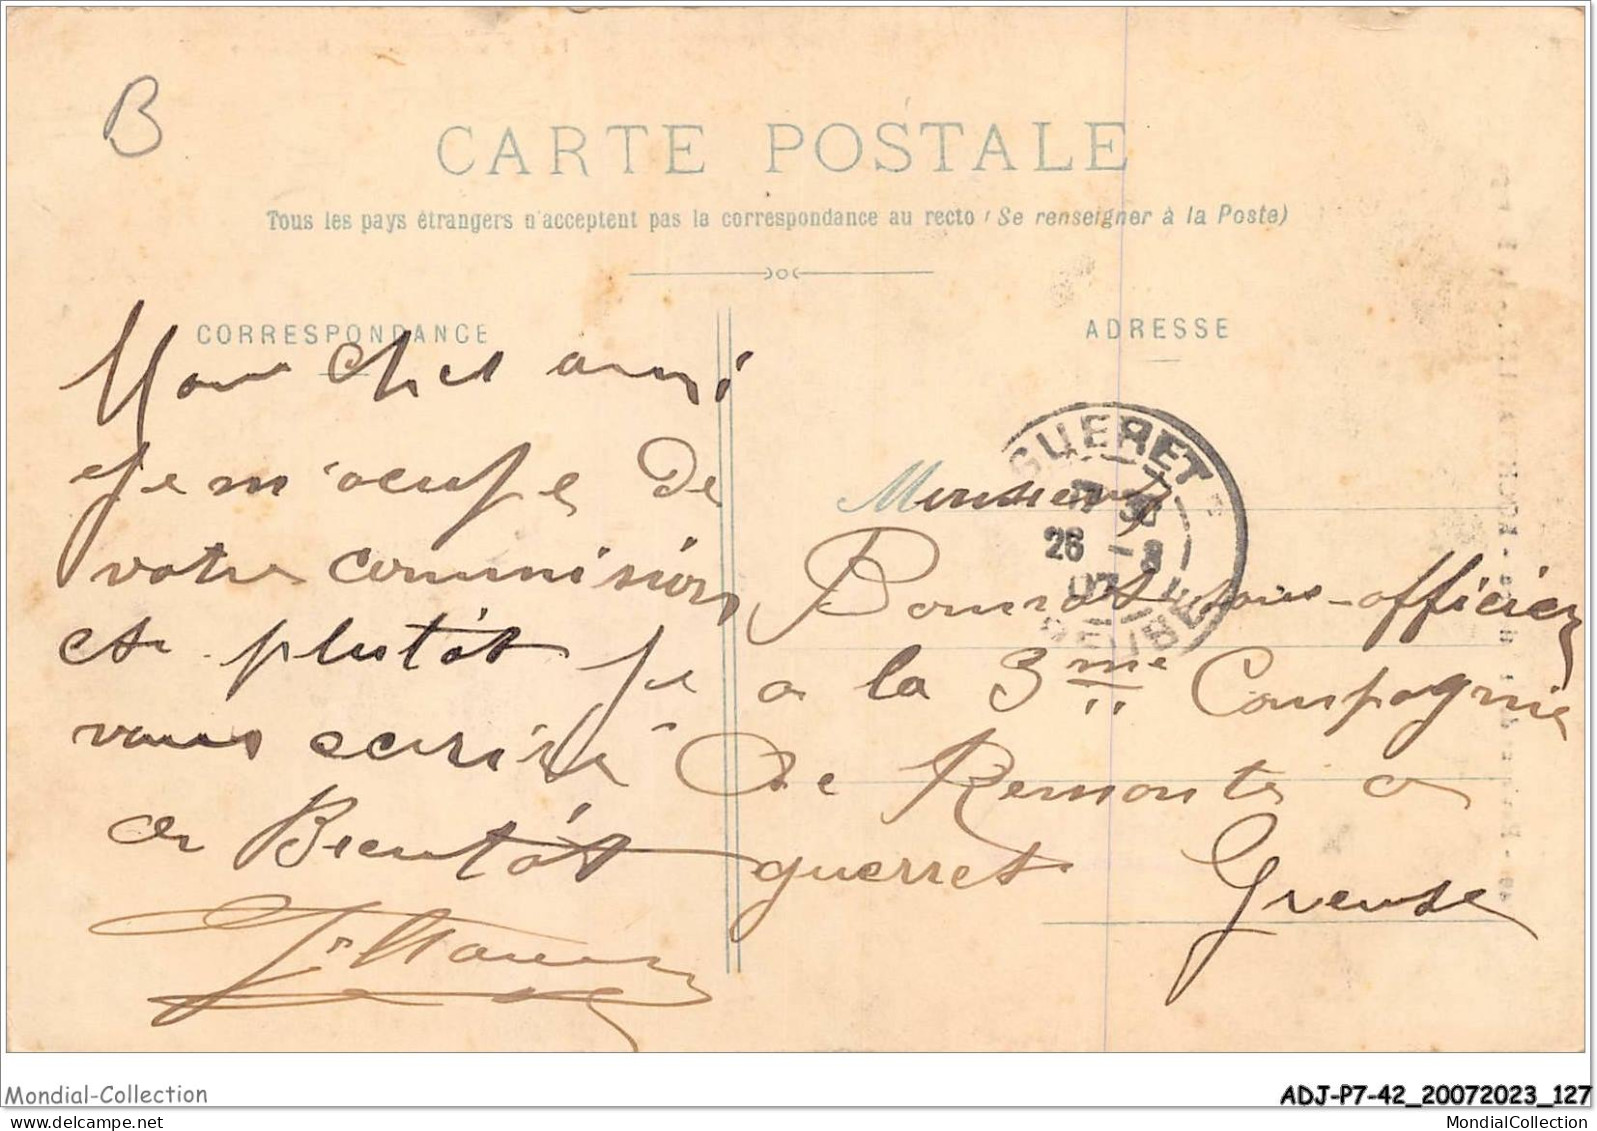 B
CARTE POSTALE
Tous les pays étrangers n'acceptent pas la correspondance au recto (Se renseigner à la Poste)
CORRESPONDANCE
Mon cher ami
je m'ocupe de
votre commision
et plutôt je
vous ecrire
a Bientôt
ADRESSE
GUERET
26 - 8
07
Monsieur
sous-officier
a la 3me Compagnie
de Remonte a
guerret Creuse
Mondial-Collection
mondialcollection
ADJ-P7-42_20072023_127
MondialCollection